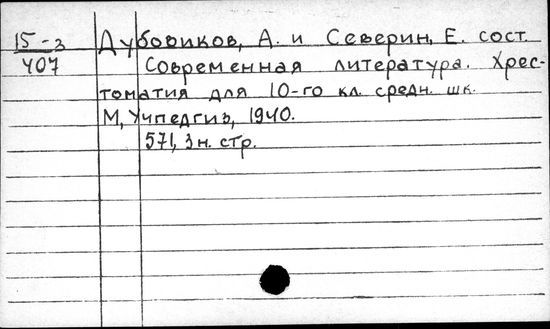 15-3 Дубовиков, А. и Северин, Е. сост.
407 Современная литература. Хрес-
томатия для 10-го кл. средн. шк.
М, Учпедгиз, 1940.
571, 3 н. стр.